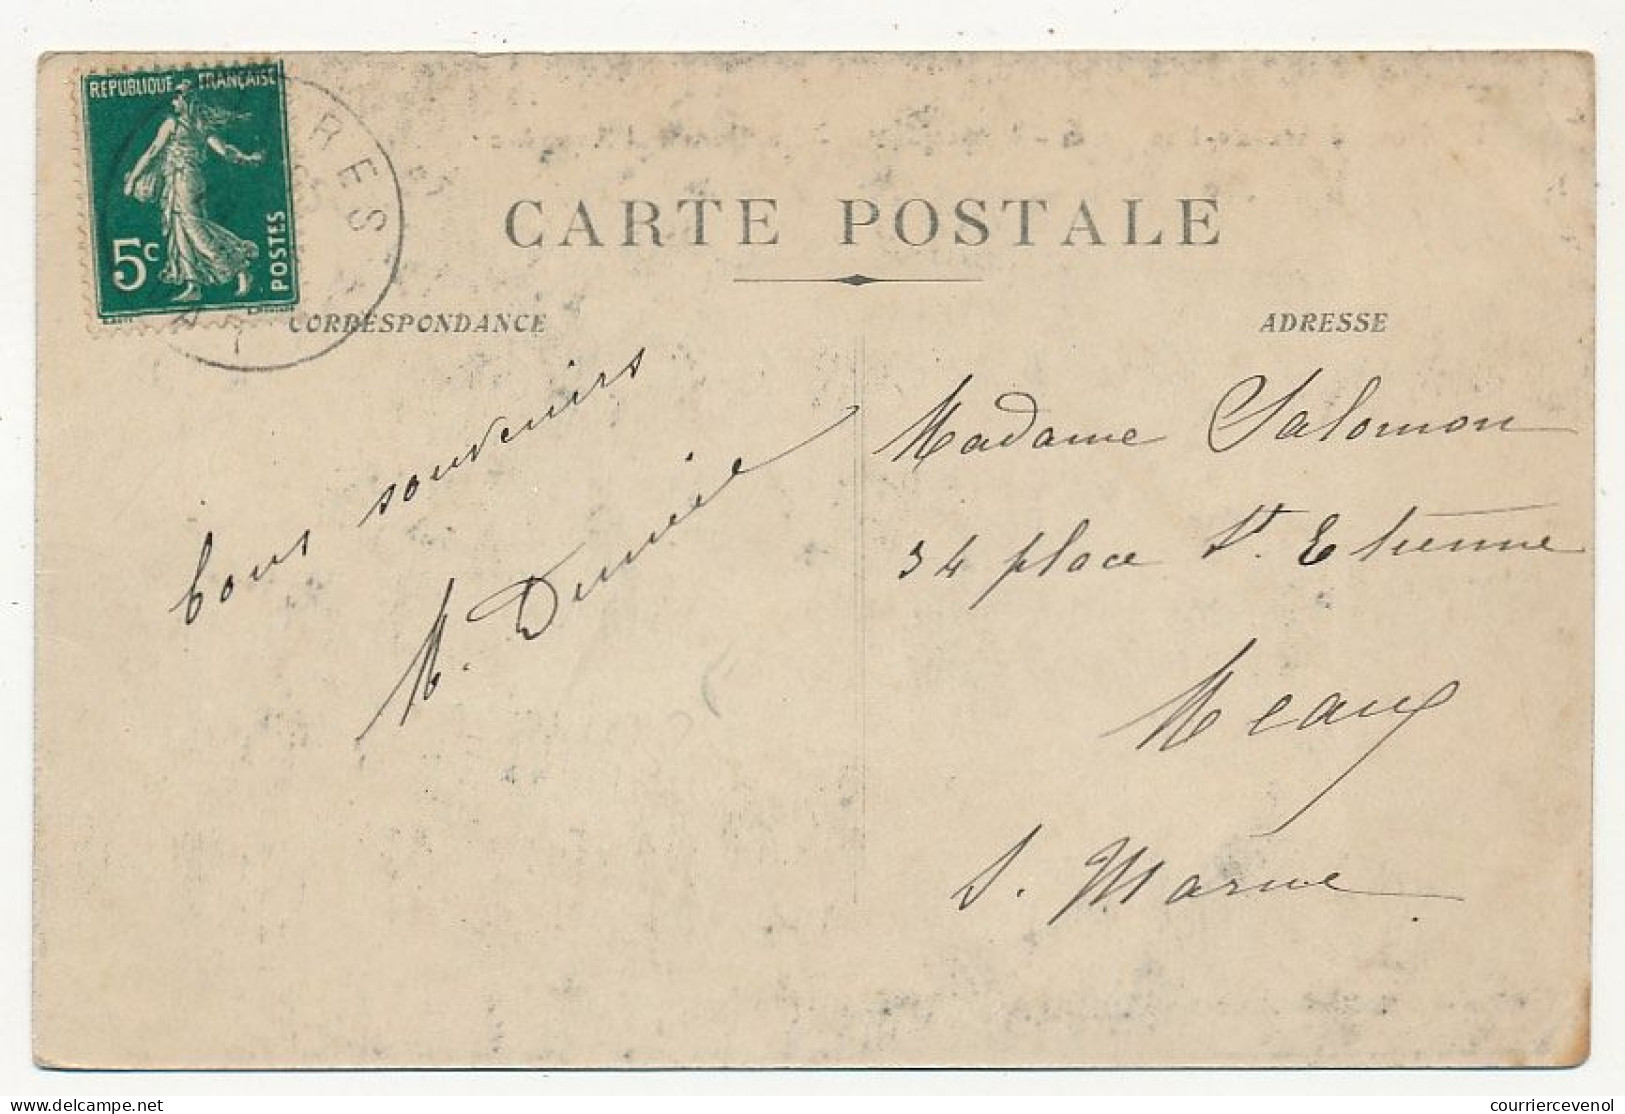 REPUBLIQUE FRANÇAISE
5c
POSTES
RES
CARTE POSTALE
CORRESPONDANCE
ADRESSE
bons souvenirs
M.
Madame Salomon
34 place St. Etienne
Meaux
S. Marne
delcampe.net
courriercevenol